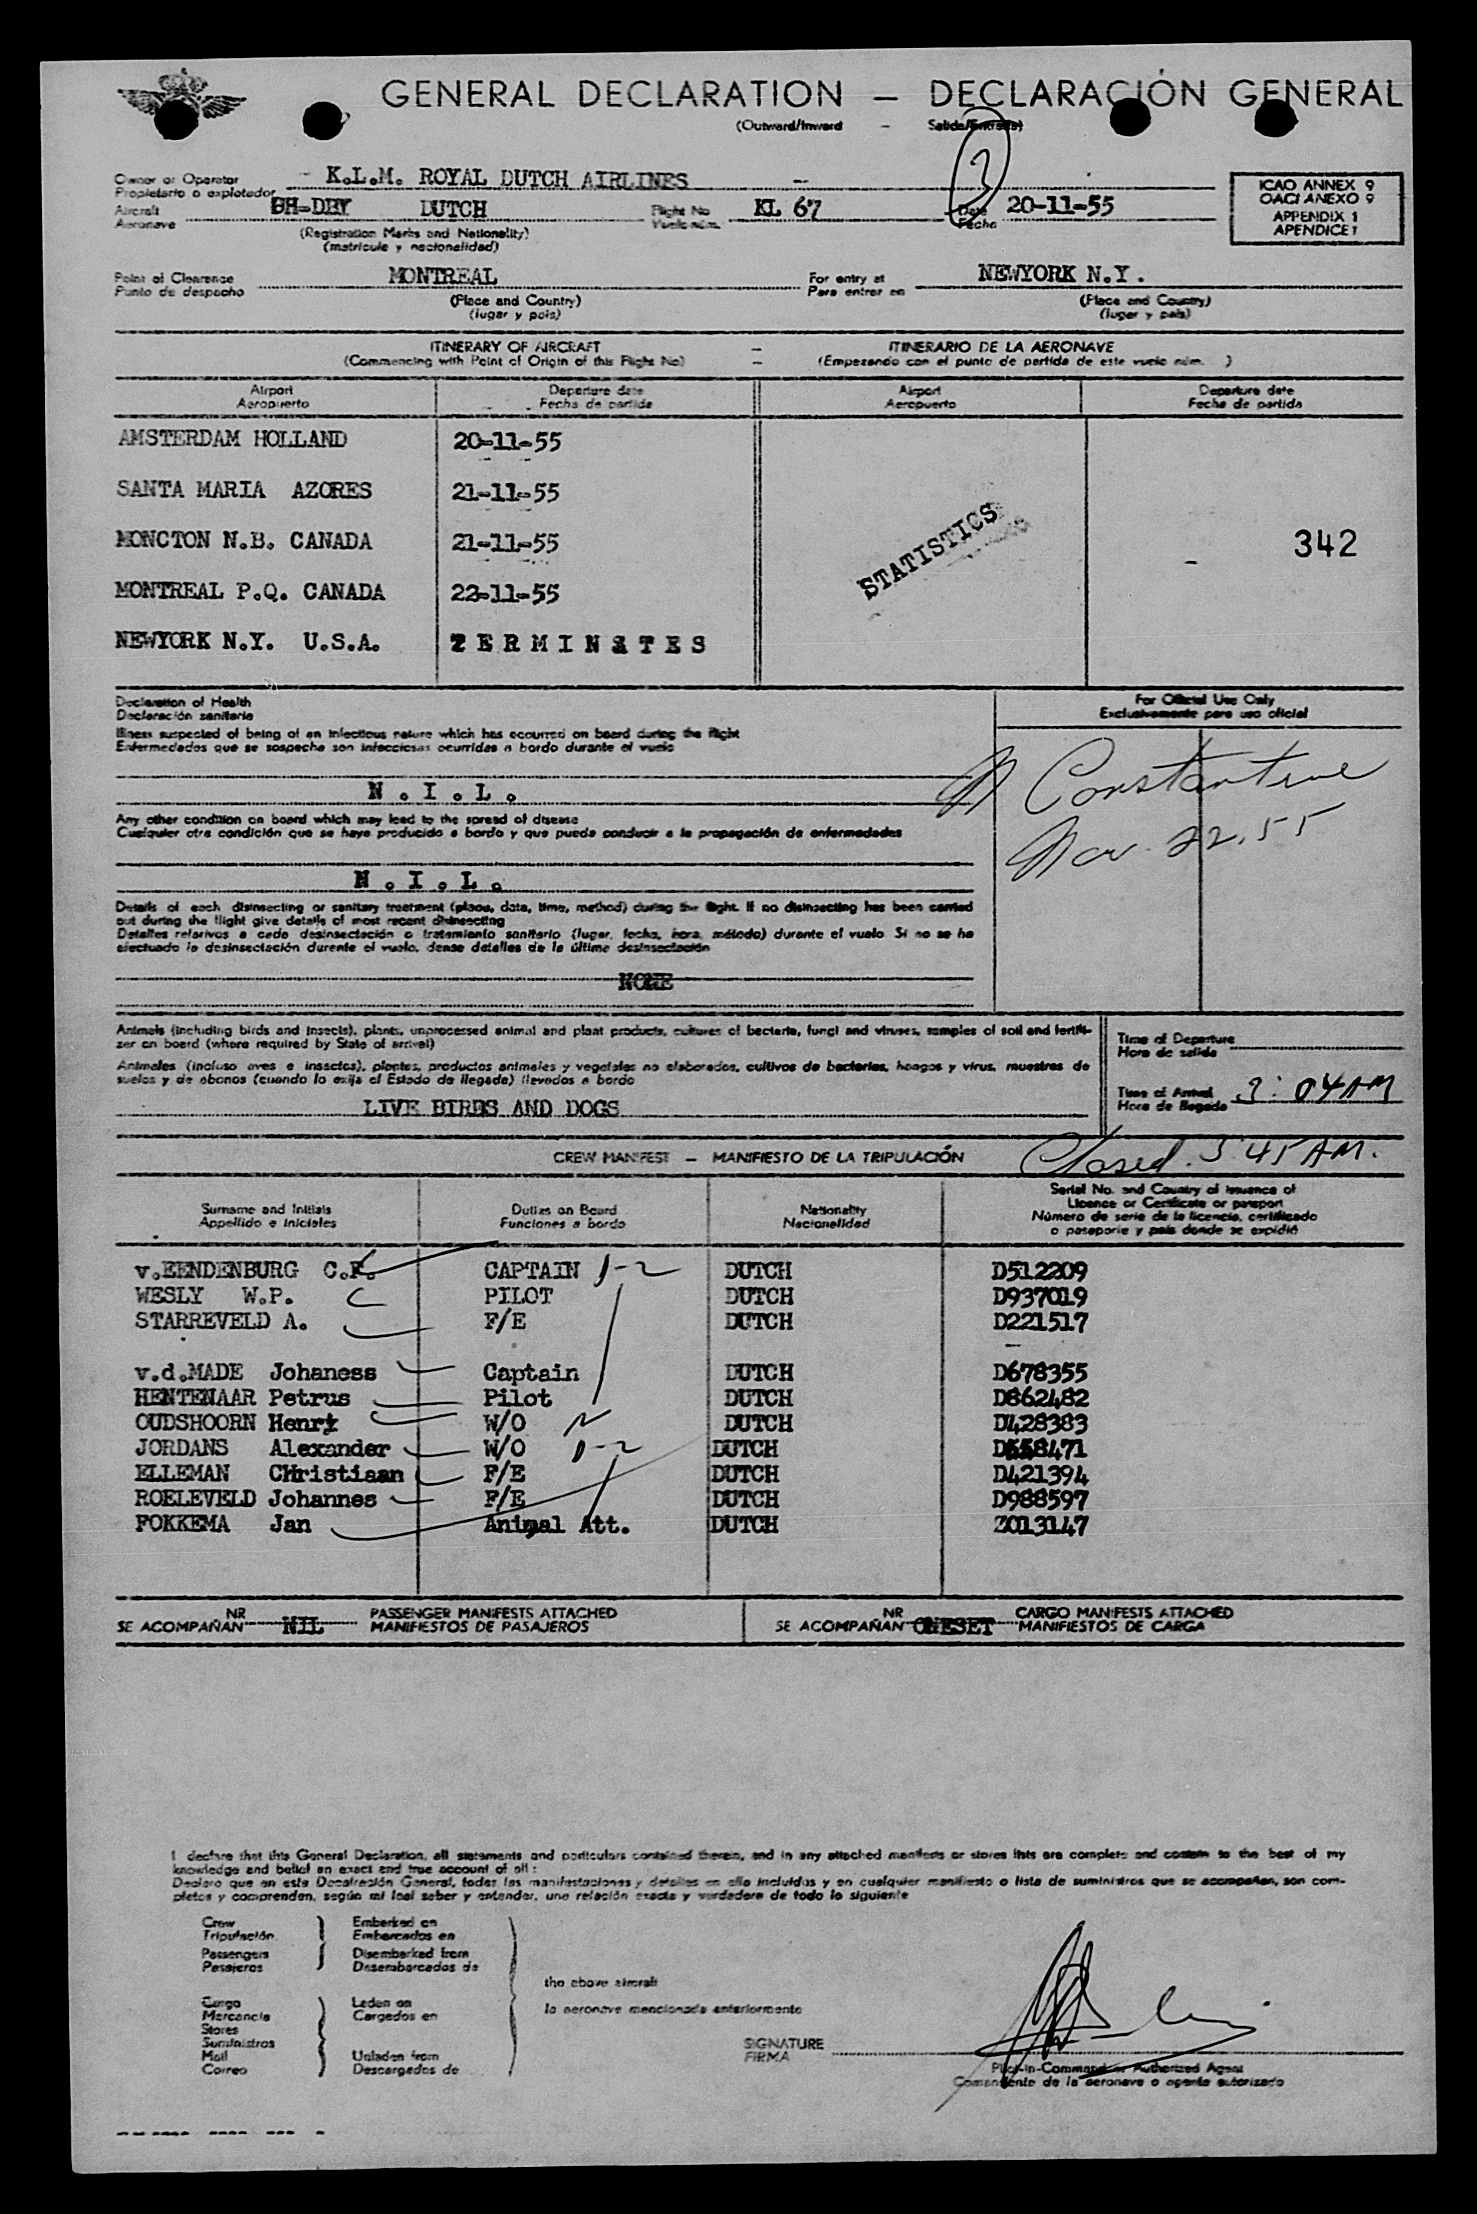 GENERAL DECLARATION — DECLARACIÓN GENERAL
(Outward/Inward - Salida/Entrada)
3
Owner or Operator K.L.M. ROYAL DUTCH AIRLINES
Propietario o explotador
ICAO ANNEX 9
OACI ANEXO 9
APPENDIX 1
APENDICE 1
Aircraft PH-DBY DUTCH Flight No KL 67 Date 20-11-55
Aeronave Vuelo núm. Fecha
(Registration Marks and Nationality)
(matrícula y nacionalidad)
Point of Clearance MONTREAL For entry at NEWYORK N.Y.
Punto de despacho Para entrar en
(Place and Country) (Place and Country)
(lugar y país) (lugar y país)
ITINERARY OF AIRCRAFT — ITINERARIO DE LA AERONAVE
(Commencing with Point of Origin of this Flight No) — (Empezando con el punto de partida de este vuelo núm. )
Airport Departure date Airport Departure date
Aeropuerto Fecha de partida Aeropuerto Fecha de partida
AMSTERDAM HOLLAND 20-11-55
SANTA MARIA AZORES 21-11-55
STATISTICS
MONCTON N.B. CANADA 21-11-55 342
MONTREAL P.Q. CANADA 22-11-55
NEWYORK N.Y. U.S.A. TERMINATES
Declaration of Health
Declaración sanitaria
For Official Use Only
Exclusivamente para uso oficial
Illness suspected of being of an infectious nature which has occurred on board during the flight
Enfermedades que se sospecha son infecciosas ocurridas a bordo durante el vuelo
N.I.L.
Constantine
Nov. 22. 55
Any other condition on board which may lead to the spread of disease
Cualquier otra condición que se haya producido a bordo y que pueda conducir a la propagación de enfermedades
N.I.L.
Details of each disinsecting or sanitary treatment (place, date, time, method) during the flight. If no disinsecting has been carried
out during the flight give details of most recent disinsecting
Detalles relativos a cada desinsectación o tratamiento sanitario (lugar, fecha, hora, método) durante el vuelo. Si no se ha
efectuado la desinsectación durante el vuelo, dense detalles de la última desinsectación
NONE
Animals (including birds and insects), plants, unprocessed animal and plant products, cultures of bacteria, fungi and viruses, samples of soil and fertili-
zer on board (where required by State of arrival)
Animales (incluso aves e insectos), plantas, productos animales y vegetales no elaborados, cultivos de bacterias, hongos y virus, muestras de
suelos y de abonos (cuando lo exija el Estado de llegada) llevados a bordo
LIVE BIRDS AND DOGS
Time of Departure
Hora de salida
Time of Arrival 3:04 AM
Hora de llegada
CREW MANIFEST — MANIFIESTO DE LA TRIPULACIÓN
Closed. 3 45 AM.
Surname and Initials Duties on Board Nationality Serial No. and Country of issuance of Licence or Certificate or passport
Appellido e iniciales Funciones a bordo Nacionalidad Número de serie de la licencia, certificado o pasaporte y país donde se expidió
v.EENDENBURG C.F. CAPTAIN D-2 DUTCH D512209
WESLY W.P. PILOT DUTCH D937019
STARREVELD A. F/E DUTCH D221517
v.d.MADE Johaness Captain DUTCH D678355
HENTENAAR Petrus Pilot DUTCH D862482
OUDSHOORN Henri W/O DUTCH D428383
JORDANS Alexander W/O D-2 DUTCH D558471
ELLEMAN CHristiaan F/E DUTCH D421394
ROELEVELD Johannes F/E DUTCH D988597
FOKKEMA Jan Animal Att. DUTCH Z013147
NR NIL PASSENGER MANIFESTS ATTACHED
SE ACOMPAÑAN MANIFIESTOS DE PASAJEROS
NR ONESET CARGO MANIFESTS ATTACHED
SE ACOMPAÑAN MANIFIESTOS DE CARGA
I declare that this General Declaration, all statements and particulars contained therein, and in any attached manifests or stores lists are complete and contain to the best of my
knowledge and belief an exact and true account of all :
Declaro que en esta Decalración General, todas las manifestaciones y detalles en ella incluidos y en cualquier manifiesto o lista de suministros que se acompañan, son com-
pletos y comprenden, según mi leal saber y entender, una relación exacta y verdadera de todo lo siguiente
Crew Embarked on
Tripulación Embarcados en
Passengers Disembarked from
Pasajeros Desembarcados de
the above aircraft
Cargo Laden on
la aeronave mencionada anteriormente
Mercancía Cargados en
Stores
Suministros
Mail Unladen from
Correo Descargados de
SIGNATURE
FIRMA
Pilot-in-Command or Authorized Agent
Comandante de la aeronave o agente autorizado